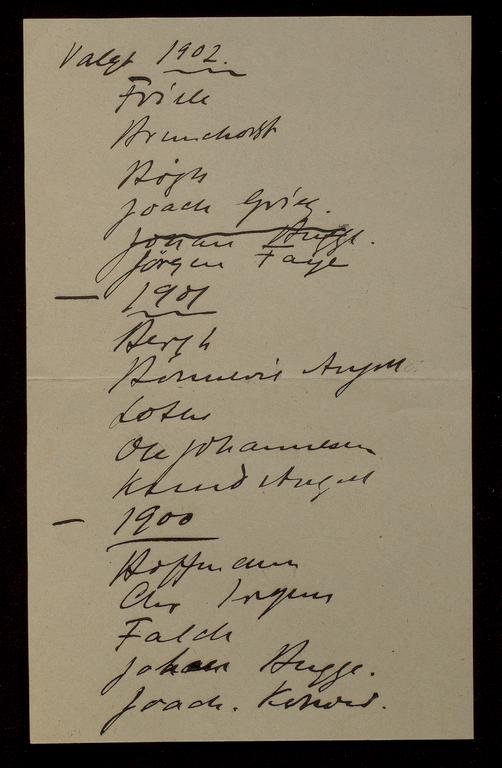 Valgt 1902.
Friele
Brunchorst
Bøgh
Joach Grieg.
Johan Bugge.
Jörgen Faye
— 1901
Bergh
Angell
Lothe
Ole Johannesen
Knud Angell
— 1900
Hoffmann
Chr Irgens
Falck
Johan Bugge.
Joach.